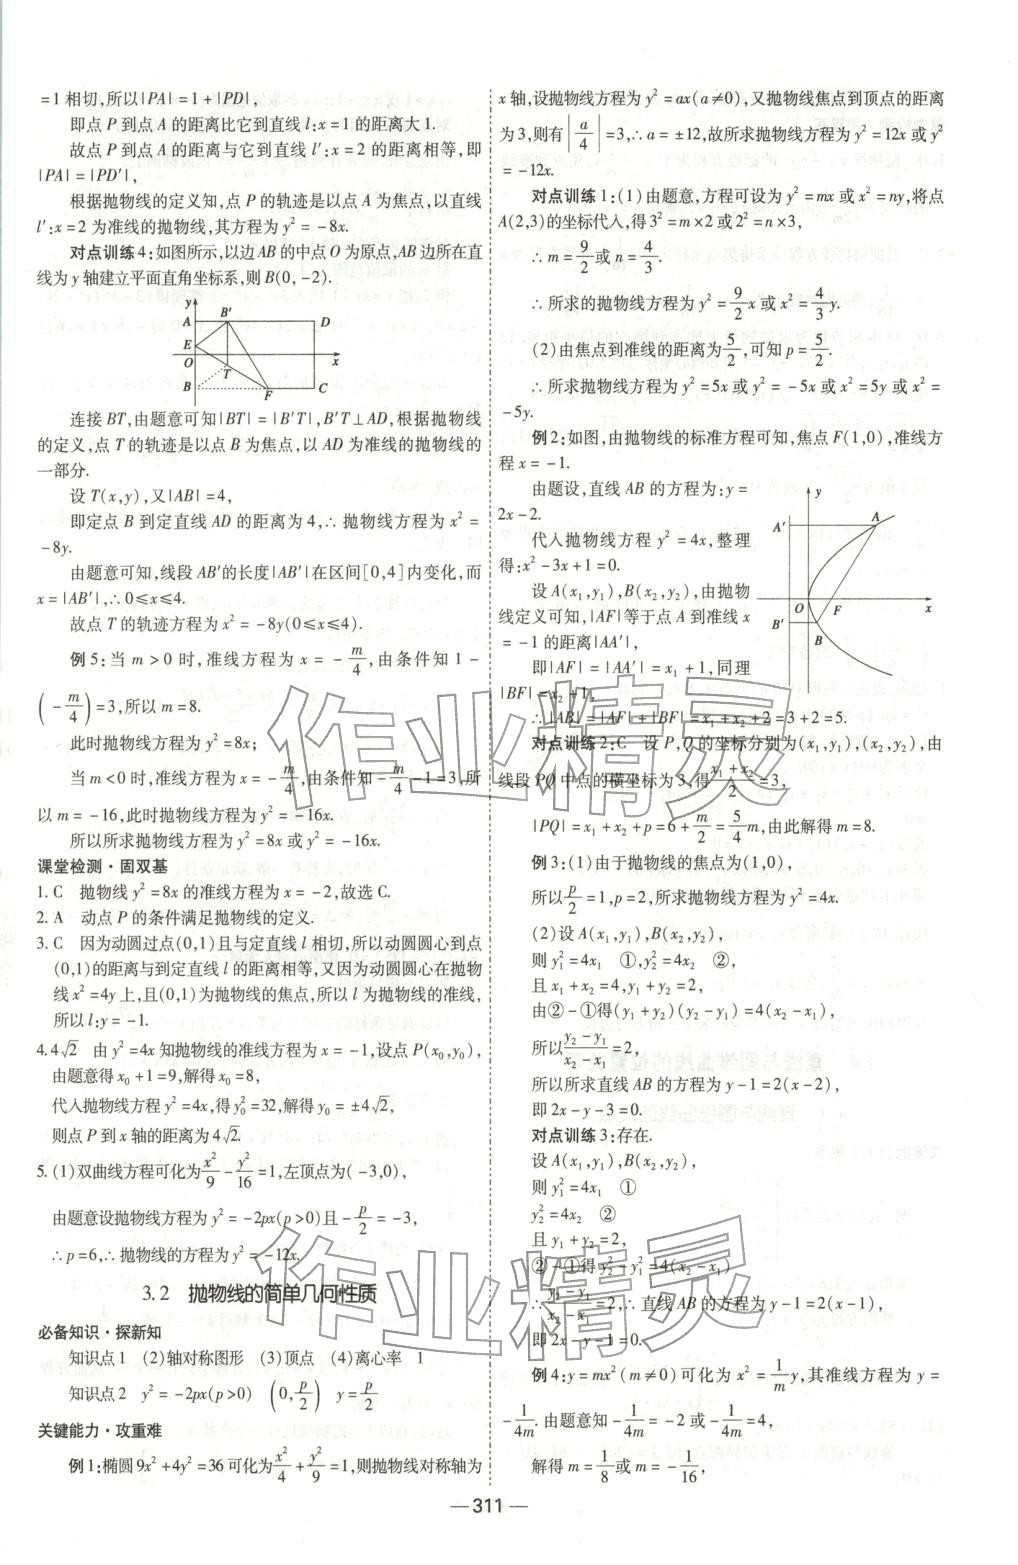 =1相切,所以|PA|=1+|PD|,
即点P到点A的距离比它到直线l:x=1的距离大1.
故点P到点A的距离与它到直线l′:x=2的距离相等,即
|PA|=|PD′|,
根据抛物线的定义知,点P的轨迹是以点A为焦点,以直线
l′:x=2为准线的抛物线,其方程为y²=-8x.
对点训练4:如图所示,以边AB的中点O为原点,AB边所在直
线为y轴建立平面直角坐标系,则B(0,-2).
y
A B′ D
E
O x
T
B F C
连接BT,由题意可知|BT|=|B′T|,B′T⊥AD,根据抛物线
的定义,点T的轨迹是以点B为焦点,以AD为准线的抛物线的
一部分.
设T(x,y),又|AB|=4,
即定点B到定直线AD的距离为4,∴抛物线方程为x²=
-8y.
由题意可知,线段AB′的长度|AB′|在区间[0,4]内变化,而
x=|AB′|,∴0≤x≤4.
故点T的轨迹方程为x²=-8y(0≤x≤4).
例5:当m>0时,准线方程为x=-m/4,由条件知1-
(-m/4)=3,所以m=8.
此时抛物线方程为y²=8x;
当m<0时,准线方程为x=-m/4,由条件知-m/4-1=3,所
以m=-16,此时抛物线方程为y²=-16x.
所以所求抛物线方程为y²=8x或y²=-16x.
课堂检测·固双基
1. C 抛物线y²=8x的准线方程为x=-2,故选C.
2. A 动点P的条件满足抛物线的定义.
3. C 因为动圆过点(0,1)且与定直线l相切,所以动圆圆心到点
(0,1)的距离与到定直线l的距离相等,又因为动圆圆心在抛物
线x²=4y上,且(0,1)为抛物线的焦点,所以l为抛物线的准线,
所以l:y=-1.
4. 4√2 由y²=4x知抛物线的准线方程为x=-1,设点P(x₀,y₀),
由题意得x₀+1=9,解得x₀=8,
代入抛物线方程y²=4x,得y₀²=32,解得y₀=±4√2,
则点P到x轴的距离为4√2.
5. (1)双曲线方程可化为x²/9-y²/16=1,左顶点为(-3,0),
由题意设抛物线方程为y²=-2px(p>0)且-p/2=-3,
∴p=6,∴抛物线的方程为y²=-12x.
3.2 抛物线的简单几何性质
必备知识·探新知
知识点1 (2)轴对称图形 (3)顶点 (4)离心率 1
知识点2 y²=-2px(p>0) (0,p/2) y=p/2
关键能力·攻重难
例1:椭圆9x²+4y²=36可化为x²/4+y²/9=1,则抛物线对称轴为
x轴,设抛物线方程为y²=ax(a≠0),又抛物线焦点到顶点的距离
为3,则有|a/4|=3,∴a=±12,故所求抛物线方程为y²=12x或y²
=-12x.
对点训练1:(1)由题意,方程可设为y²=mx或x²=ny,将点
A(2,3)的坐标代入,得3²=m×2或2²=n×3,
∴m=9/2或n=4/3.
∴所求的抛物线方程为y²=9/2x或x²=4/3y.
(2)由焦点到准线的距离为5/2,可知p=5/2.
∴所求抛物线方程为y²=5x或y²=-5x或x²=5y或x²=
-5y.
例2:如图,由抛物线的标准方程可知,焦点F(1,0),准线方
程x=-1.
由题设,直线AB的方程为:y=
2x-2.
代入抛物线方程y²=4x,整理
得:x²-3x+1=0.
设A(x₁,y₁),B(x₂,y₂),由抛物
线定义可知,|AF|等于点A到准线x
=-1的距离|AA′|,
y
A′ A
O F x
B′ B
即|AF|=|AA′|=x₁+1,同理
|BF|=x₂+1,
∴|AB|=|AF|+|BF|=x₁+x₂+2=3+2=5.
对点训练2:C 设P,Q的坐标分别为(x₁,y₁),(x₂,y₂),由
线段PQ中点的横坐标为3,得(x₁+x₂)/2=3,
|PQ|=x₁+x₂+p=6+m/2=5/4m,由此解得m=8.
例3:(1)由于抛物线的焦点为(1,0),
所以p/2=1,p=2,所求抛物线方程为y²=4x.
(2)设A(x₁,y₁),B(x₂,y₂),
则y₁²=4x₁ ①,y₂²=4x₂ ②,
且x₁+x₂=4,y₁+y₂=2,
由②-①得(y₁+y₂)(y₂-y₁)=4(x₂-x₁),
所以(y₂-y₁)/(x₂-x₁)=2,
所以所求直线AB的方程为y-1=2(x-2),
即2x-y-3=0.
对点训练3:存在.
设A(x₁,y₁),B(x₂,y₂),
则y₁²=4x₁ ①
y₂²=4x₂ ②
且y₁+y₂=2,
②-①得y₂²-y₁²=4(x₂-x₁)
∴(y₂-y₁)/(x₂-x₁)=2,∴直线AB的方程为y-1=2(x-1),
即2x-y-1=0.
例4:y=mx²(m≠0)可化为x²=1/m y,其准线方程为y=
-1/4m.由题意知-1/4m=-2或-1/4m=4,
解得m=1/8或m=-1/16,
— 311 —
作业精灵
作业精灵